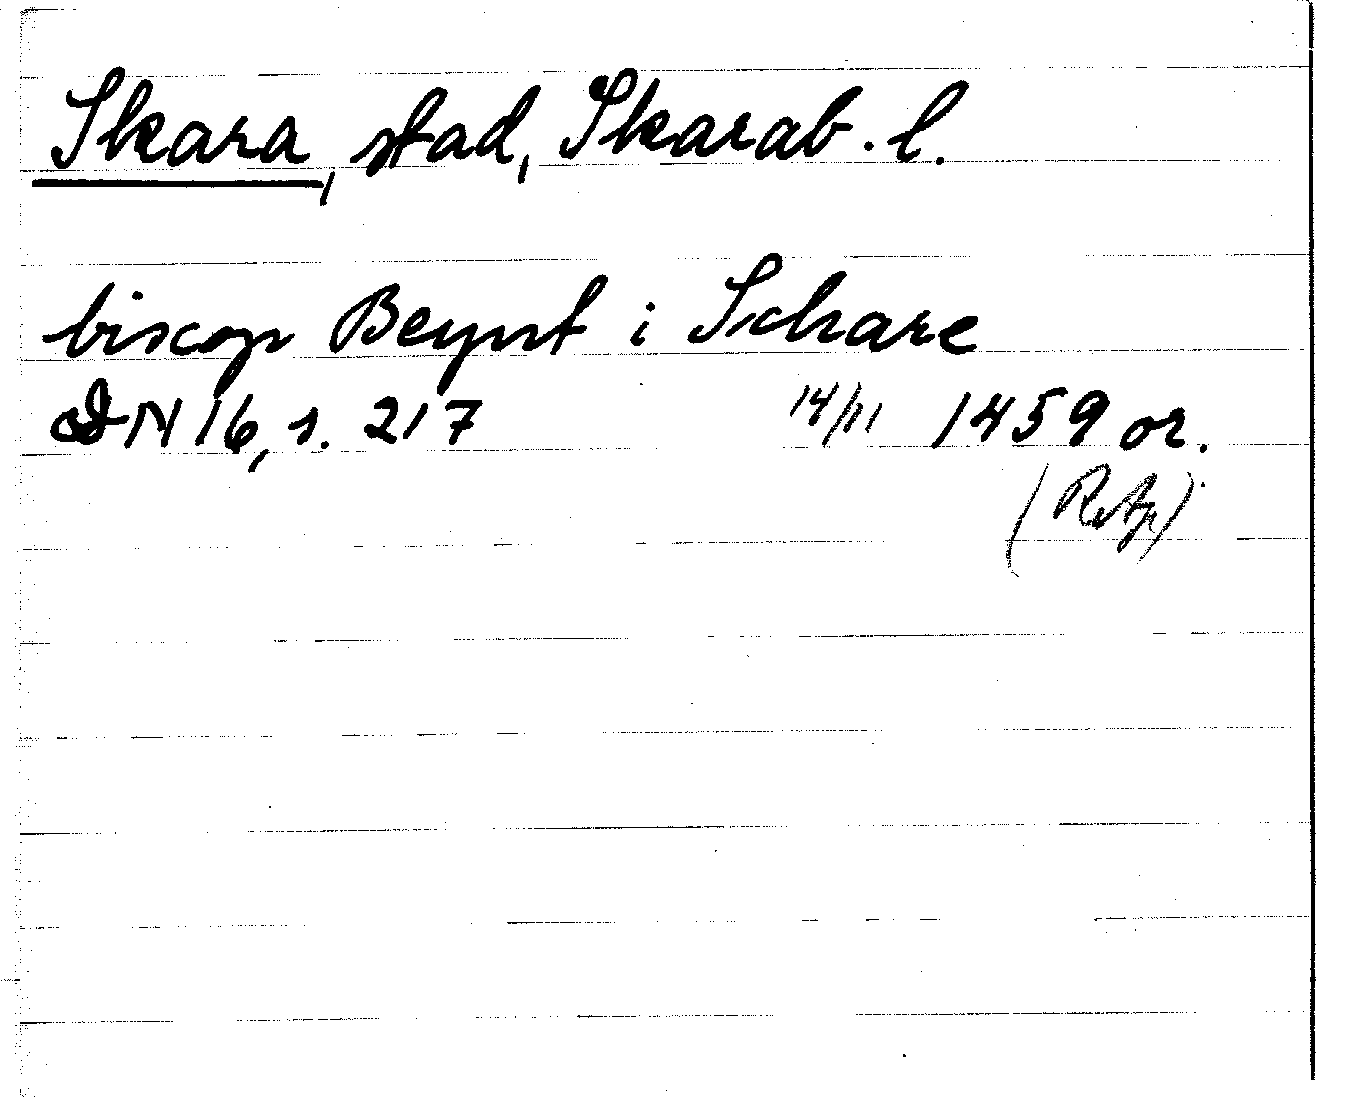 Skara, stad, Skarab. l.
biscop Beynt i Schare
DN 16, s. 217 14/11 1459 or.
(RAp)